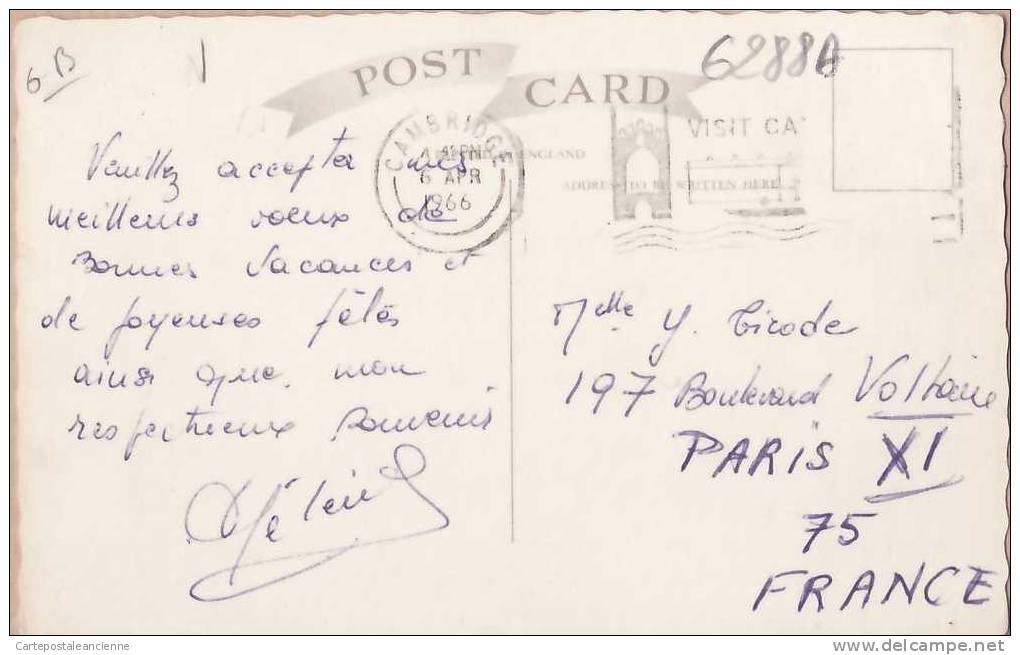 6 B
62888
POST CARD
CAMBRIDGE
6 APR
1966
VISIT CA
ENGLAND
ADDRESS TO BE WRITTEN HERE
Veuillez accepter mes
meilleurs voeux de
Bonnes Vacances et
de joyeuses fêtes
ainsi que mon
respectueux souvenir
Melle Y. Tirode
197 Boulevard Voltaire
PARIS XI
75
FRANCE
Cartepostaleancienne
www.delcampe.net